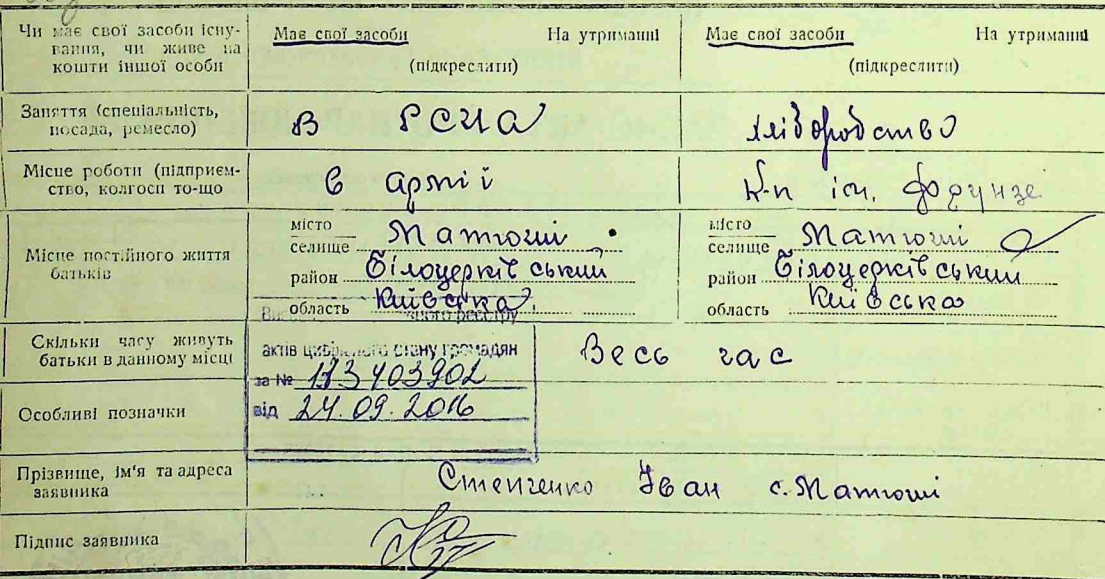 Чи має свої засоби існу-
вання, чи живе на
кошти іншої особи
Має свої засоби На утриманні
(підкреслити)
Має свої засоби На утриманні
(підкреслити)
Заняття (спеціальність,
посада, ремесло)
В РСЧА
хліборобство
Місце роботи (підприєм-
ство, колгосп то-що
в армії
К-п ім. Фрунзе
Місце постійного життя
батьків
місто
селище Матюші
район Білоцерківський
область Київська
місто
селище Матюші
район Білоцерківський
область Київська
Скільки часу живуть
батьки в данному місці
Весь час
реєстру
актів цивільного стану громадян
за № 173403902
від 24.09.2016
Особливі позначки
Прізвище, ім'я та адреса
заявника
Степченко Іван с. Матюші
Підпис заявника